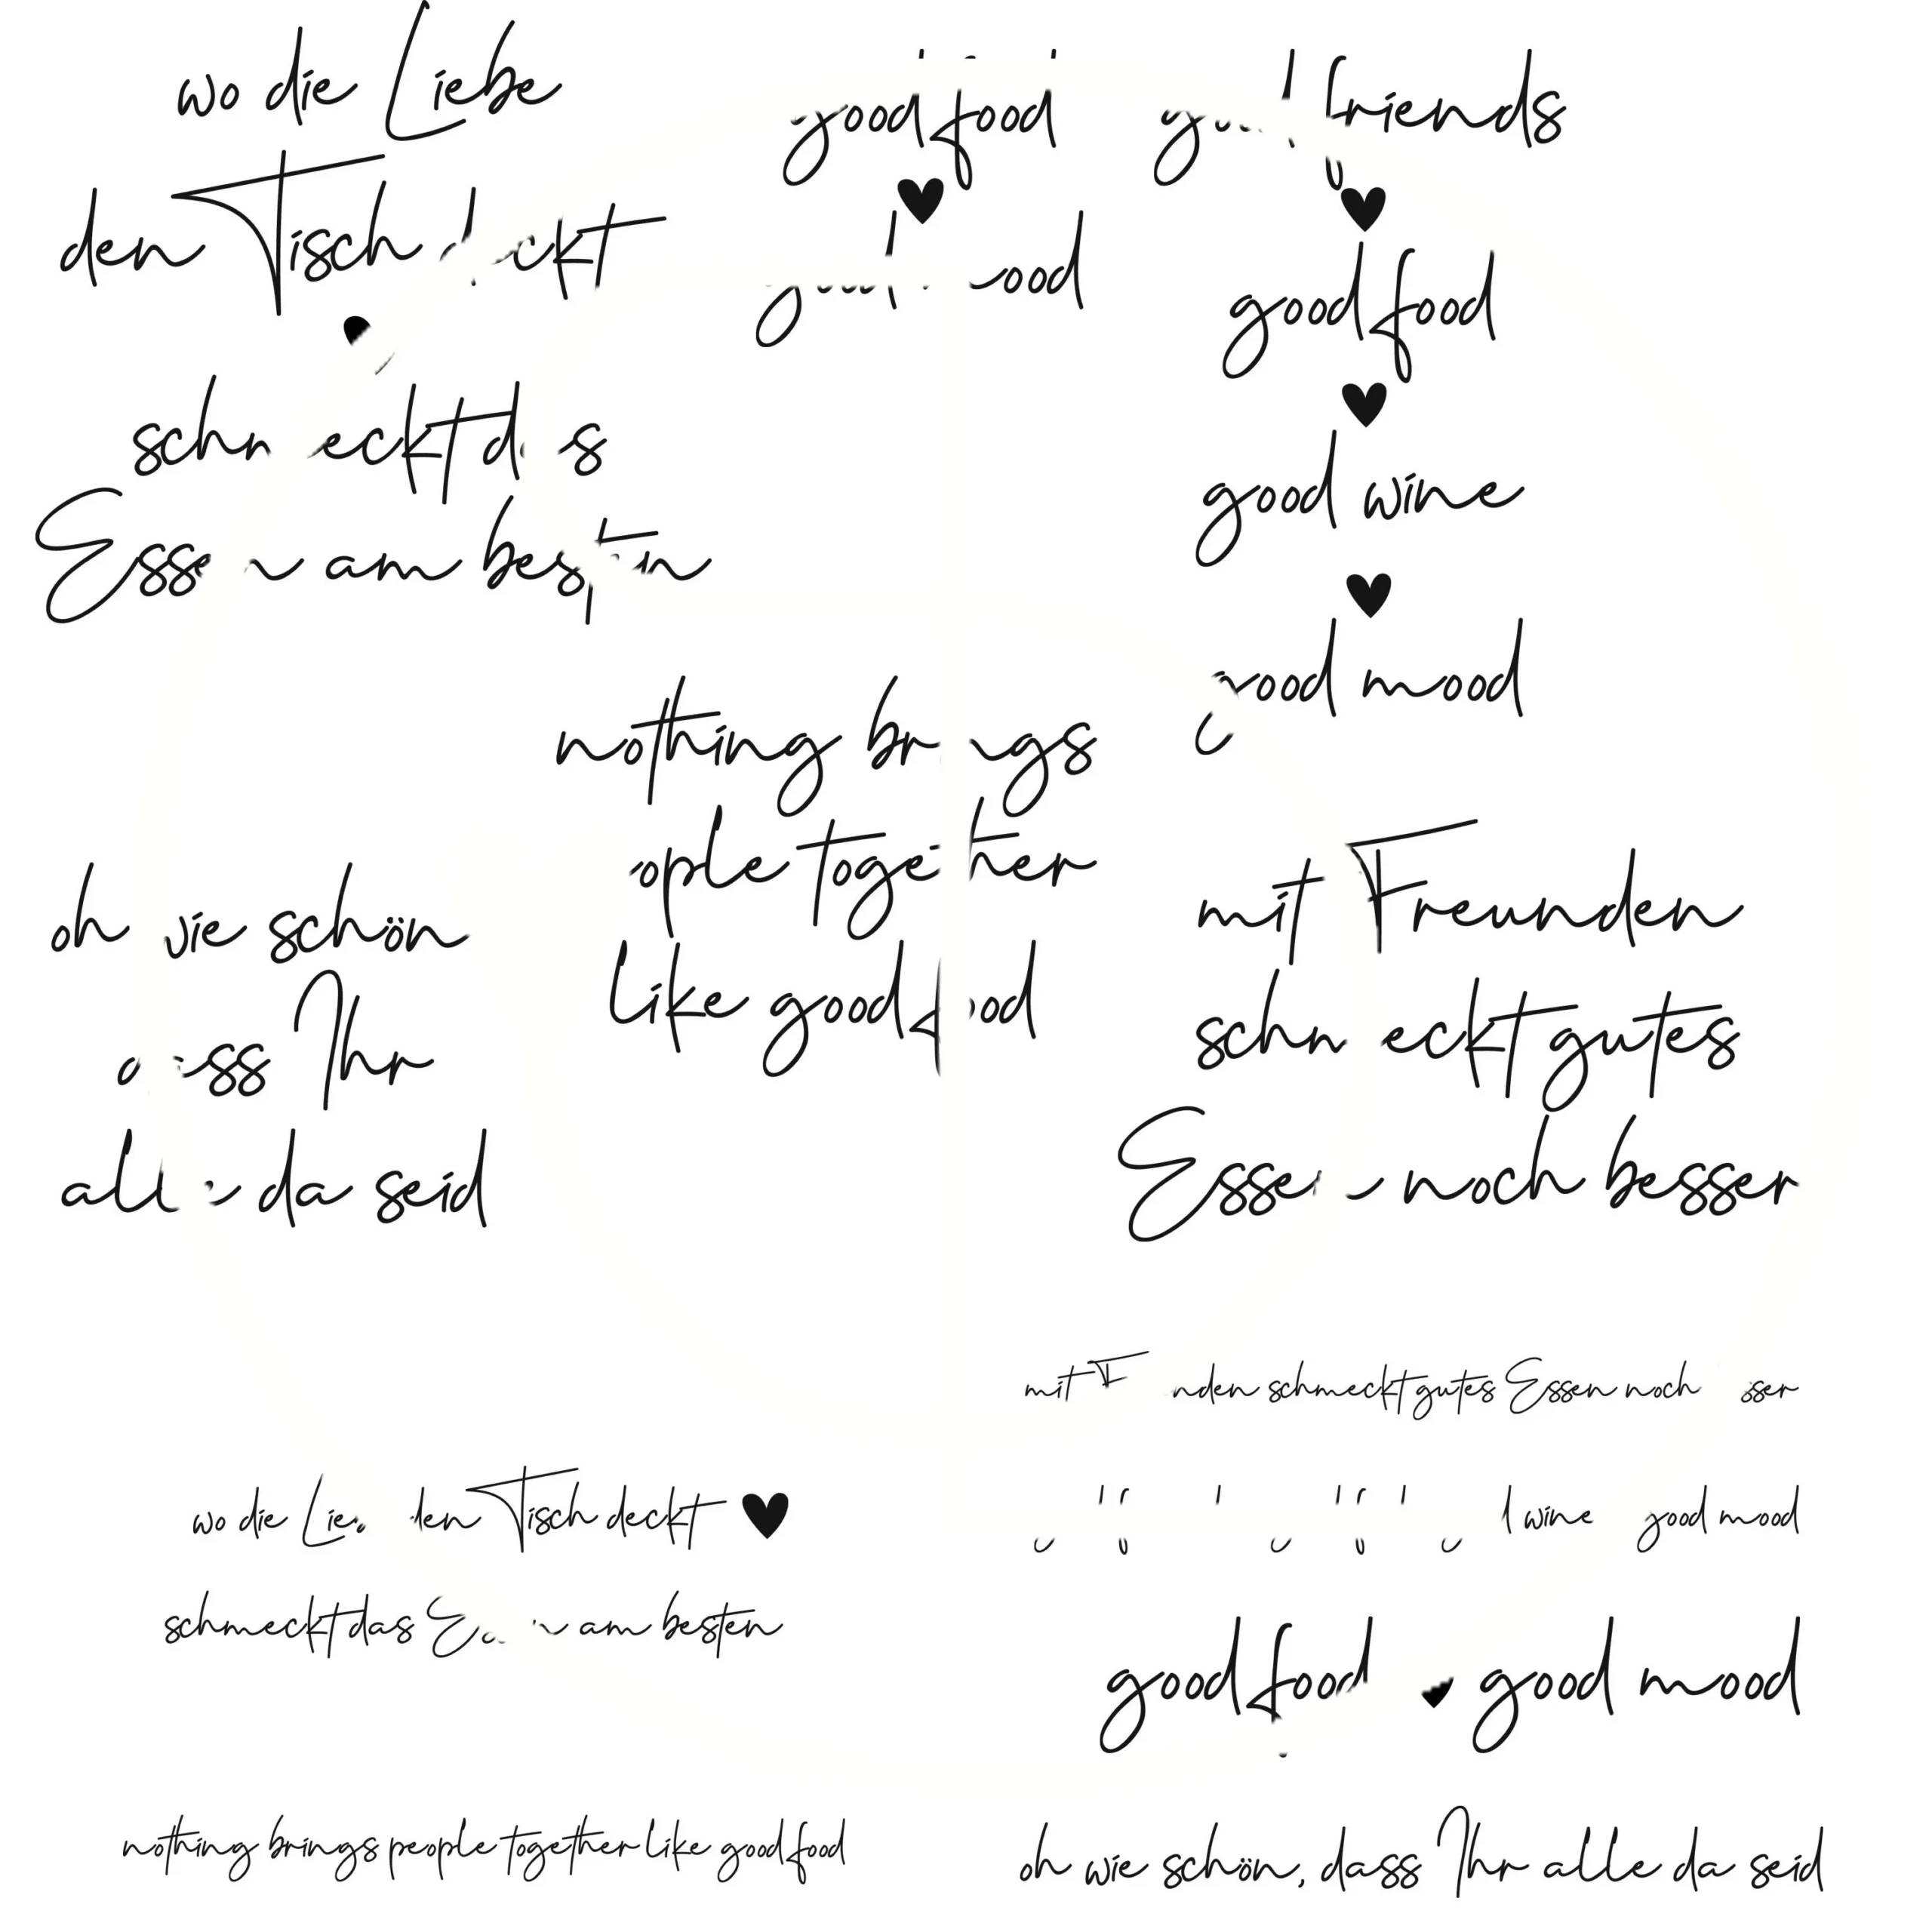 wo die Liebe
den Tisch deckt
schmeckt das
Essen am besten
good food
good mood
good friends
good food
good wine
good mood
nothing brings
people together
like good food
oh wie schön
dass Ihr
alle da seid
mit Freunden
schmeckt gutes
Essen noch besser
mit Freunden schmeckt gutes Essen noch besser
wo die Liebe den Tisch deckt
schmeckt das Essen am besten
wine good mood
good food good mood
nothing brings people together like good food
oh wie schön, dass Ihr alle da seid